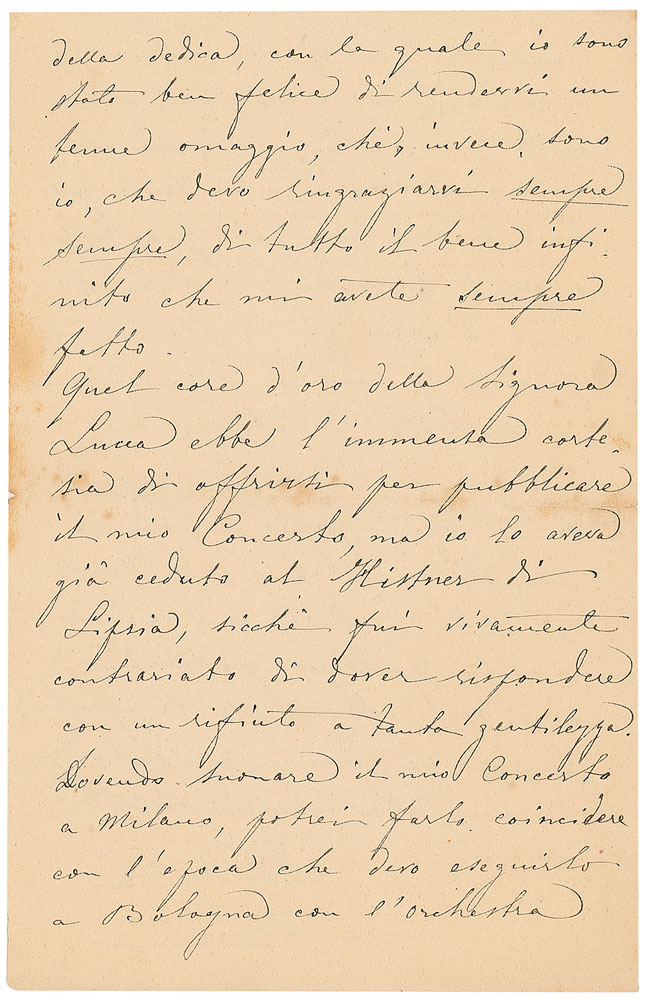 della dedica, con la quale io sono
stato ben felice di rendervi un
tenue omaggio, chè, invece, sono
io, che devo ringraziarvi sempre
sempre, di tutto il bene infi-
nito che mi avete sempre
fatto.
Quel core d'oro della Signora
Lucca ebbe l'immensa corte-
sia di offrirsi per pubblicare
il mio Concerto, ma io lo aveva
già ceduto al Kistner di
Lipsia, sicchè fui vivamente
contrariato di dover rispondere
con un rifiuto a tanta gentilezza.
Dovendo suonare il mio Concerto
a Milano, potrei farlo coincidere
con l'epoca che devo eseguirlo
a Bologna con l'orchestra